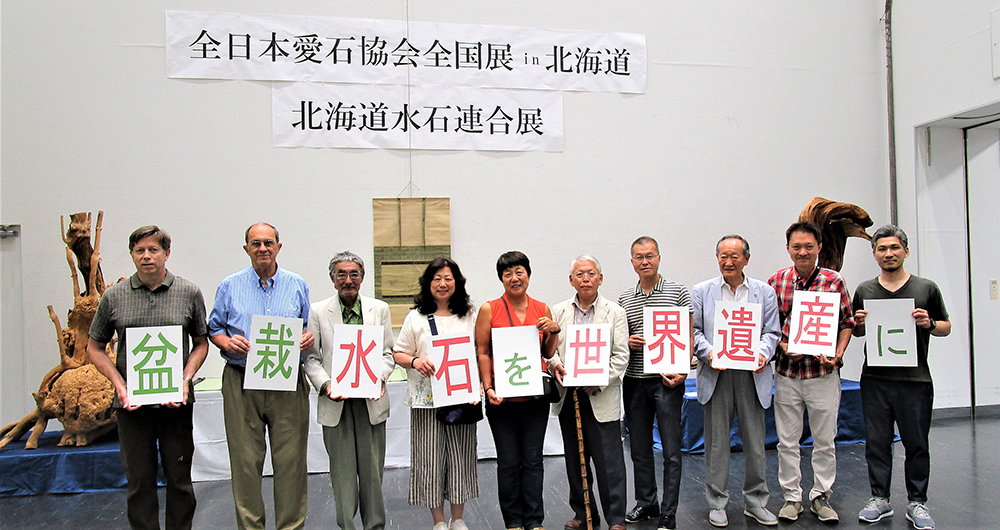 全日本愛石協会全国展 in 北海道
北海道水石連合展
盆栽水石を世界遺産に